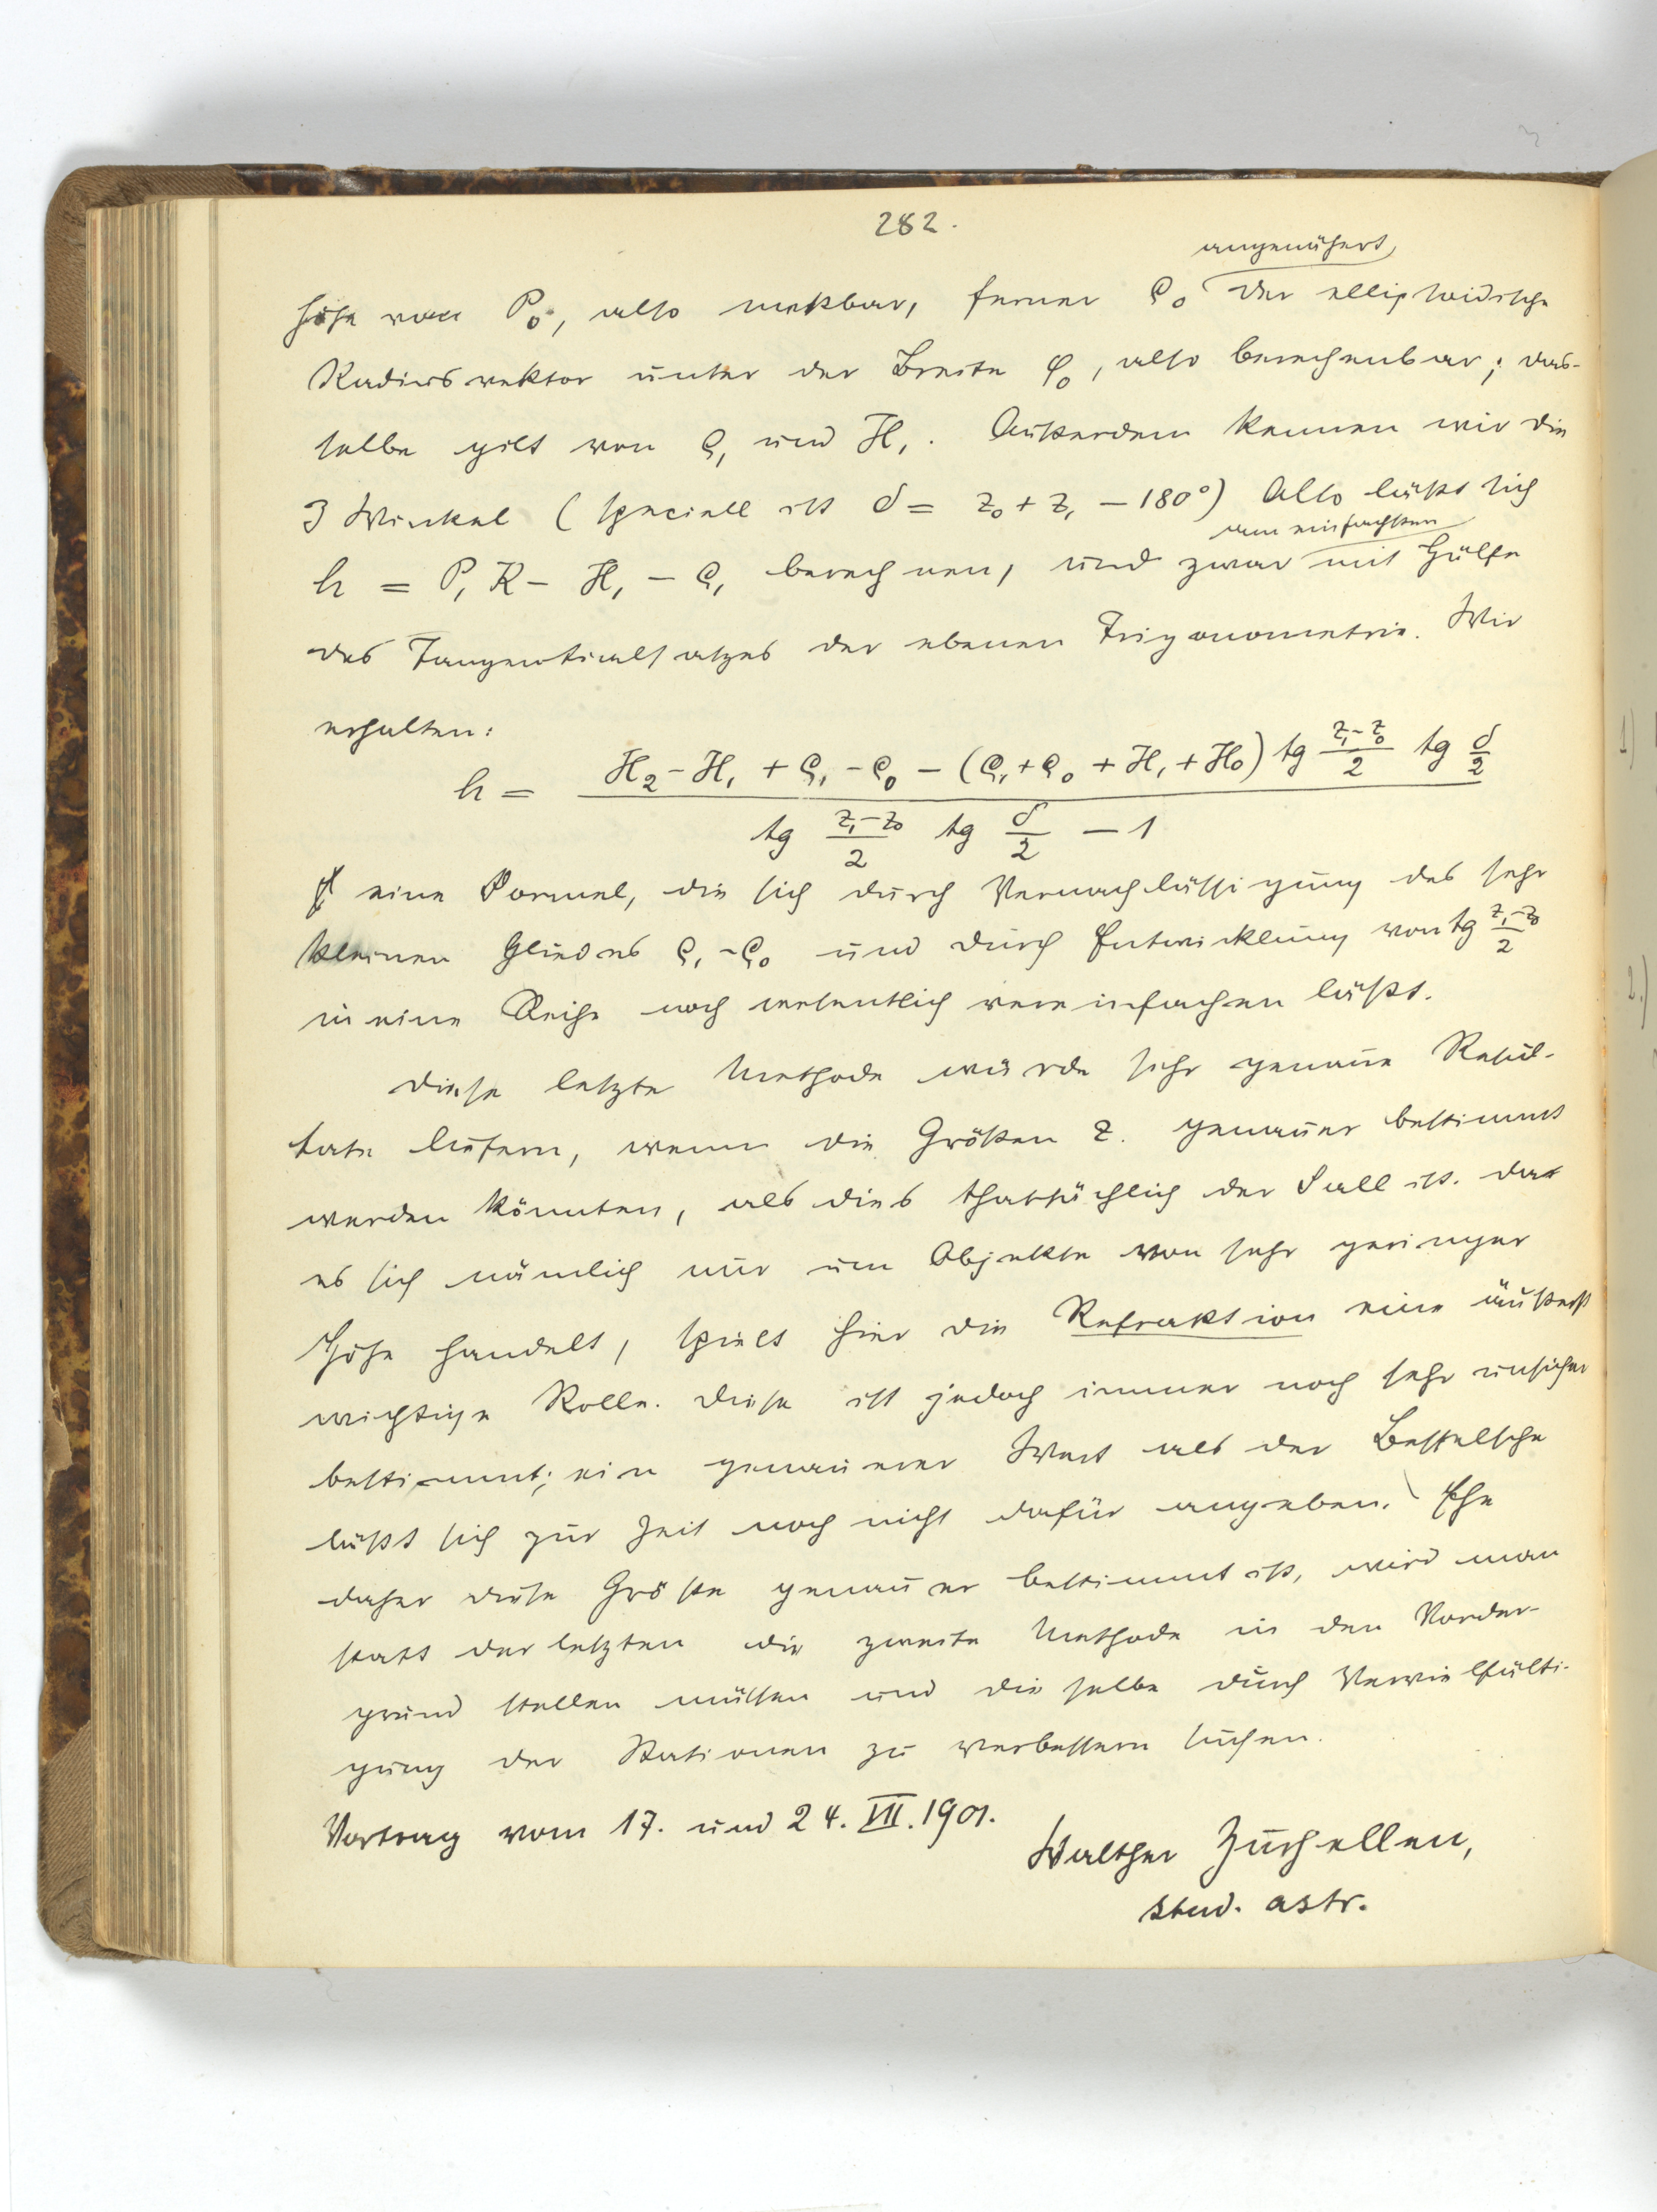 282.
angenähert
höhe von P₀, also meßbar, ferner ϱ₀ der ellipsoidische
Radiusvektor unter der Breite φ₀, also berechenbar; das-
selbe gilt von ϱ₁ und H₁. Außerdem kennen wir die
3 Winkel (speciell ist δ = z₀ + z₁ − 180°) Also läßt sich
am einfachsten
h = P₁K − H₁ − ϱ₁ berechnen, und zwar mit Hülfe
des Tangentialsatzes der ebenen Trigonometrie. Wir
erhalten:
h = (H₂ − H₁ + ϱ₁ − ϱ₀ − (ϱ₁ + ϱ₀ + H₁ + H₀) tg (z₁−z₀)/2 tg δ/2) / (tg (z₁−z₀)/2 tg δ/2 − 1)
eine Formel, die sich durch Vernachlässigung des sehr
kleinen Gliedes ϱ₁ − ϱ₀ und durch Entwicklung von tg (z₁−z₀)/2
in eine Reihe noch wesentlich vereinfachen läßt.
Diese letzte Methode würde sehr genaue Resul-
tate liefern, wenn die Größen z. genauer bestimmt
werden könnten, als dies thatsächlich der Fall ist. Da
es sich nämlich nur um Objekte von sehr geringer
Höhe handelt, spielt hier die Refraktion eine äußerst
wichtige Rolle. Diese ist jedoch immer noch sehr unsicher
bestimmt; ein genauerer Wert als der Besselsche
läßt sich zur Zeit noch nicht dafür angeben. Ehe
daher diese Größe genauer bestimmt ist, wird man
statt der letzten die zweite Methode in den Vorder-
grund stellen müssen und dieselbe durch Vervielfälti-
gung der Stationen zu verbessern suchen.
Vortrag vom 17. und 24. VII. 1901.
Walther Zurhellen,
stud. astr.
1)
2.)